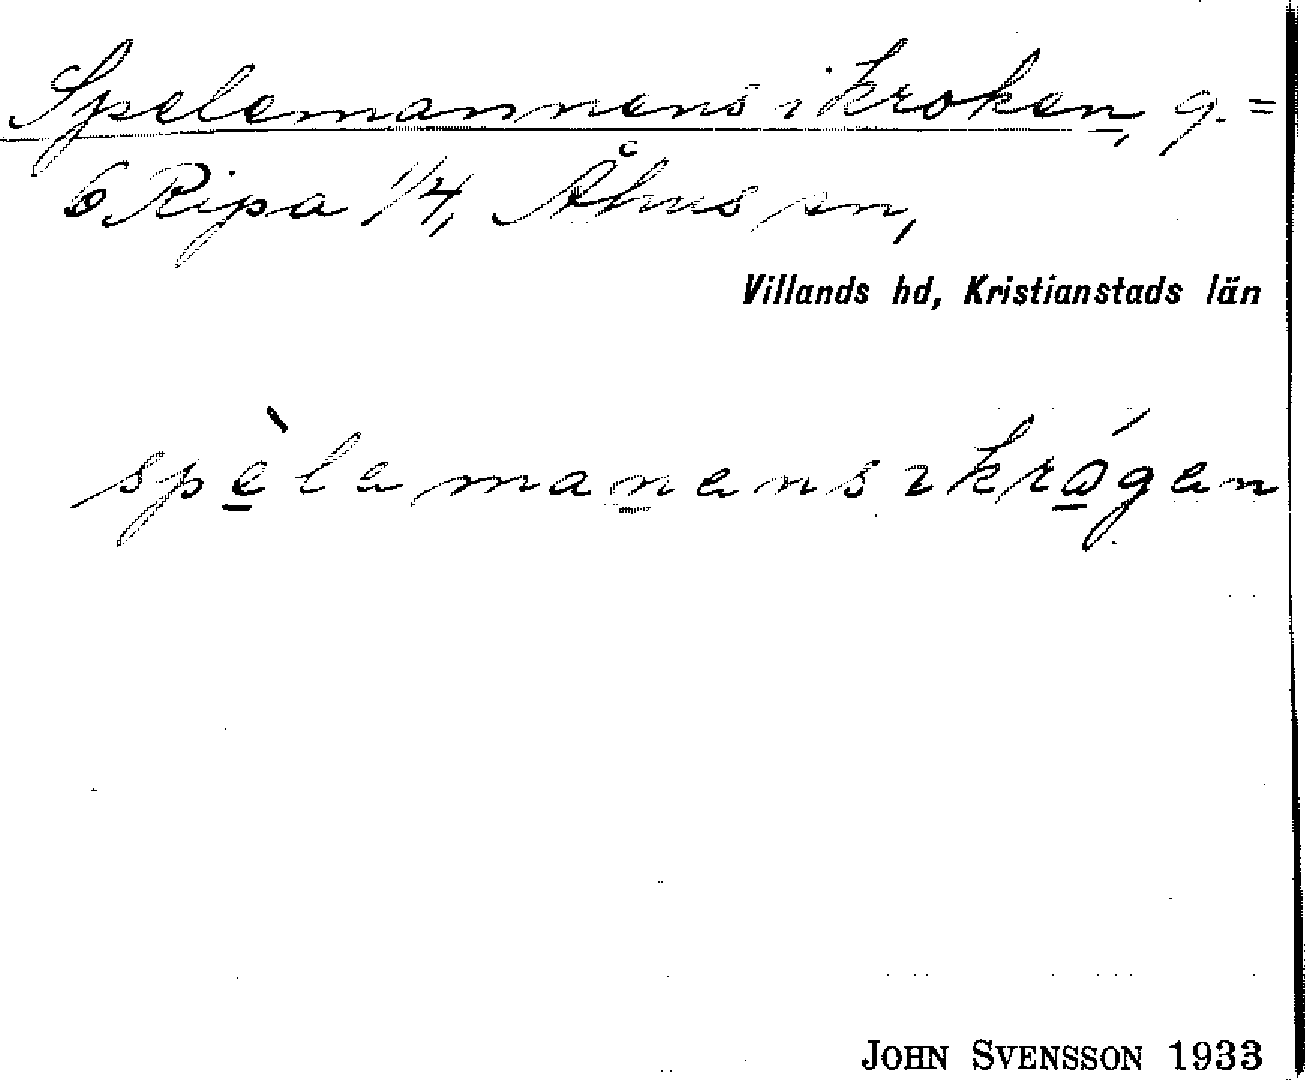 Spelemannens i kroken, g. =
6 Ripa 1/4, Åhus sn,
Villands hd, Kristianstads län
spèlamanens i krógen
JOHN SVENSSON 1933